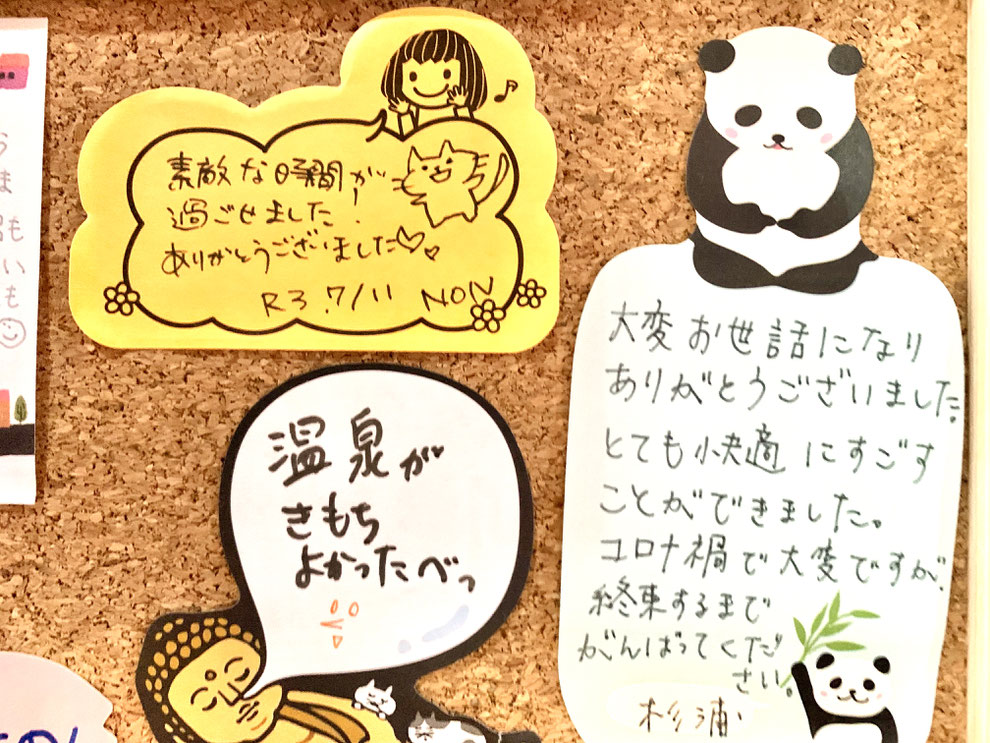 素敵な時間が
過ごせました.
ありがとうございました♡
R3.7/11 NON
温泉が
きもち
よかったべっ
大変お世話になり
ありがとうございました。
とても快適にすごす
ことができました。
コロナ禍で大変ですが、
終束するまで
がんばってくだ
さい。
杉浦
ま
も
い
も